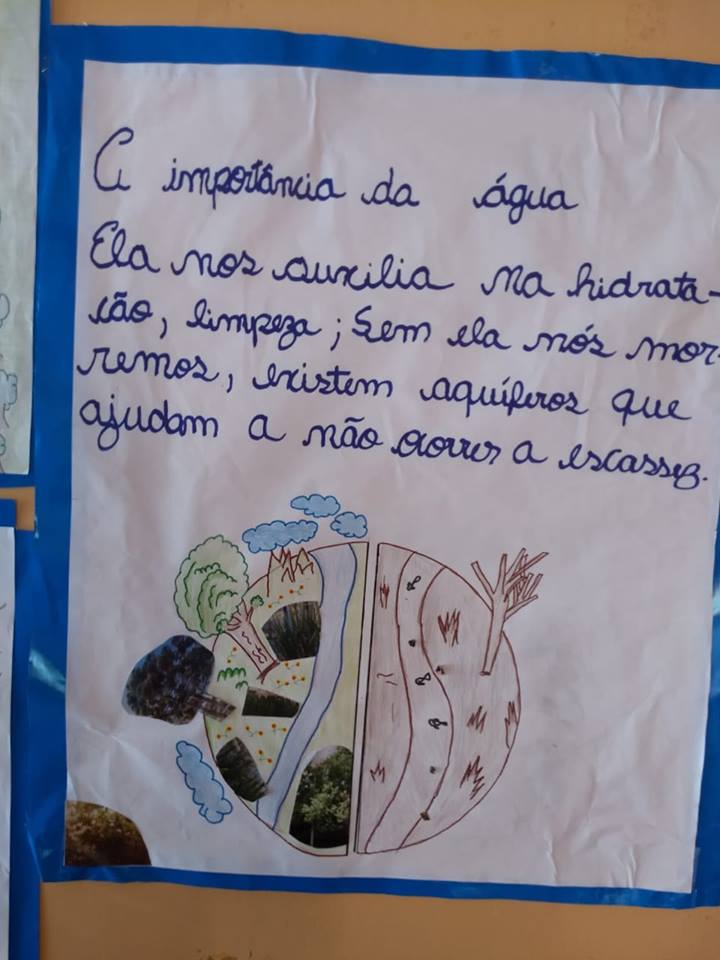 A importância da água
Ela nos auxilia na hidrata-
ção, limpeza; Sem ela nós mor-
remos, existem aquíferos que
ajudam a não ocorrer a escassez.